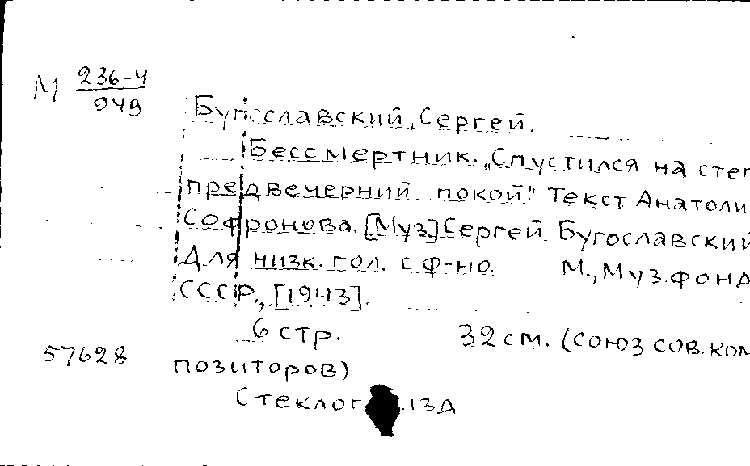 М 236-4
949
Бугославский, Сергей.
Бессмертник. „Спустился на степ
предвечерний покой". Текст Анатоли
Софронова. [Муз.] Сергей Бугославский
Для низк. гол. с ф-но. М., Муз. фонд
СССР, [1943].
6 стр. 32 см. (Союз сов. ком
57628 позиторов)
Стеклог